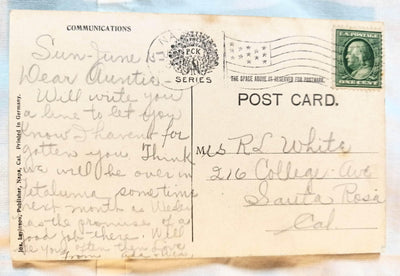 COMMUNICATIONS
Sun-June
Dear Auntie
Will write you
a line to let you
know I havent for
gotten you Think
we will be over in
Petaluma sometime
next month as Wesley
has the promise of a
good job there. Will
see you often then Love
from
Jos. Levinson, Publisher, Napa, Cal. Printed in Germany.
PCK
SERIES
THE SPACE ABOVE IS RESERVED FOR POSTMARK.
U.S. POSTAGE
ONE CENT
POST CARD.
Mrs R L White
216 College Ave
Santa Rosa
Cal.